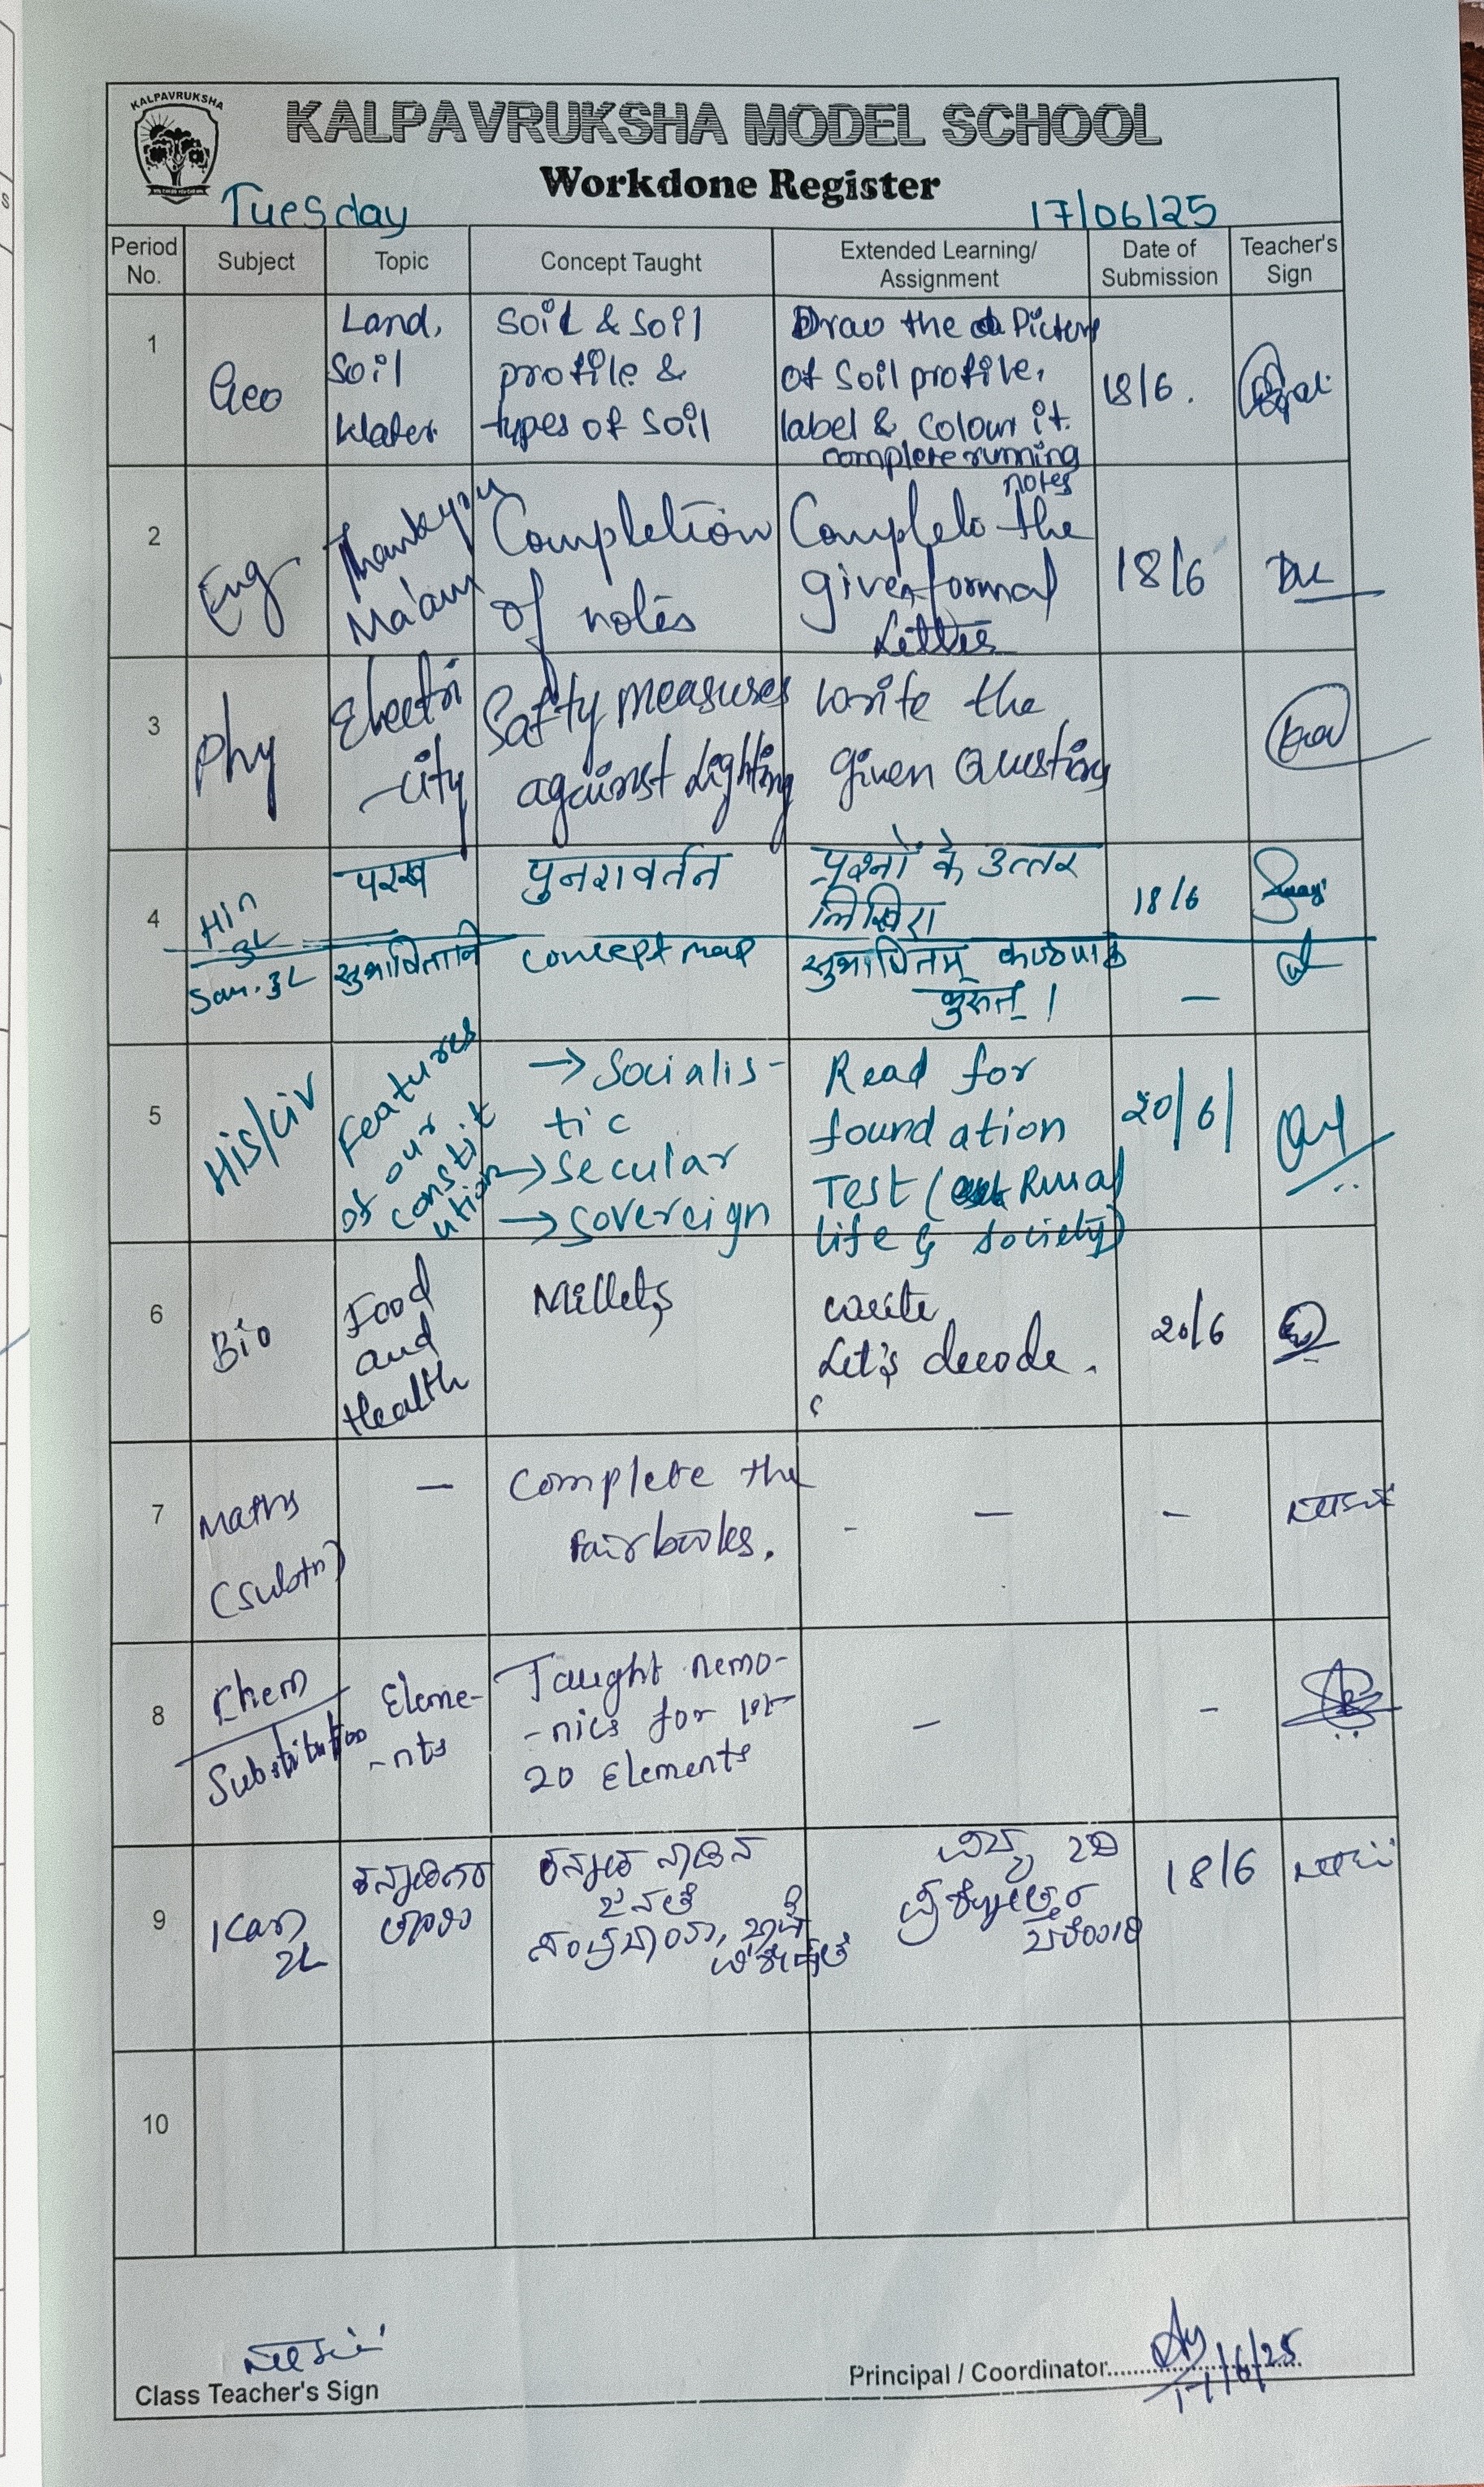 KALPAVRUKSHA
KALPAVRUKSHA MODEL SCHOOL
Workdone Register
Tuesday 17/06/25
Period No. Subject Topic Concept Taught Extended Learning/ Assignment Date of Submission Teacher's Sign
1 Geo Land, Soil Water Soil & Soil profile & types of soil Draw the Picture of Soil profile, label & colour it. complete running notes 18/6.
2 Eng Thankyou Ma'am Completion of notes Complete the given formal Letter 18/6
3 Phy Electri -city Safty measures against Lighting Write the given Questions
4 Hin 3L परख पुनरावर्तन प्रश्नों के उत्तर लिखिए 18/6
San. 3L सुभाषितानि concept map सुभाषितम् कण्ठपाठं कुरुत। –
5 His/Civ Features of our constitution → Socialis- tic → Secular → Sovereign Read for foundation Test (Rural life & society) 20/6
6 Bio Food and Health Millets write Let's decode. 20/6
7 Maths (Substn) – Complete the Fair books. - – –
8 Chem Substitution Eleme- -nts Taught nemo- -nics for 1st 20 Elements – –
9 Kan 2L ಕನ್ನಡ ನಾಡಿನ ಜನತೆ 18/6
10
Class Teacher's Sign
Principal / Coordinator 17/6/25